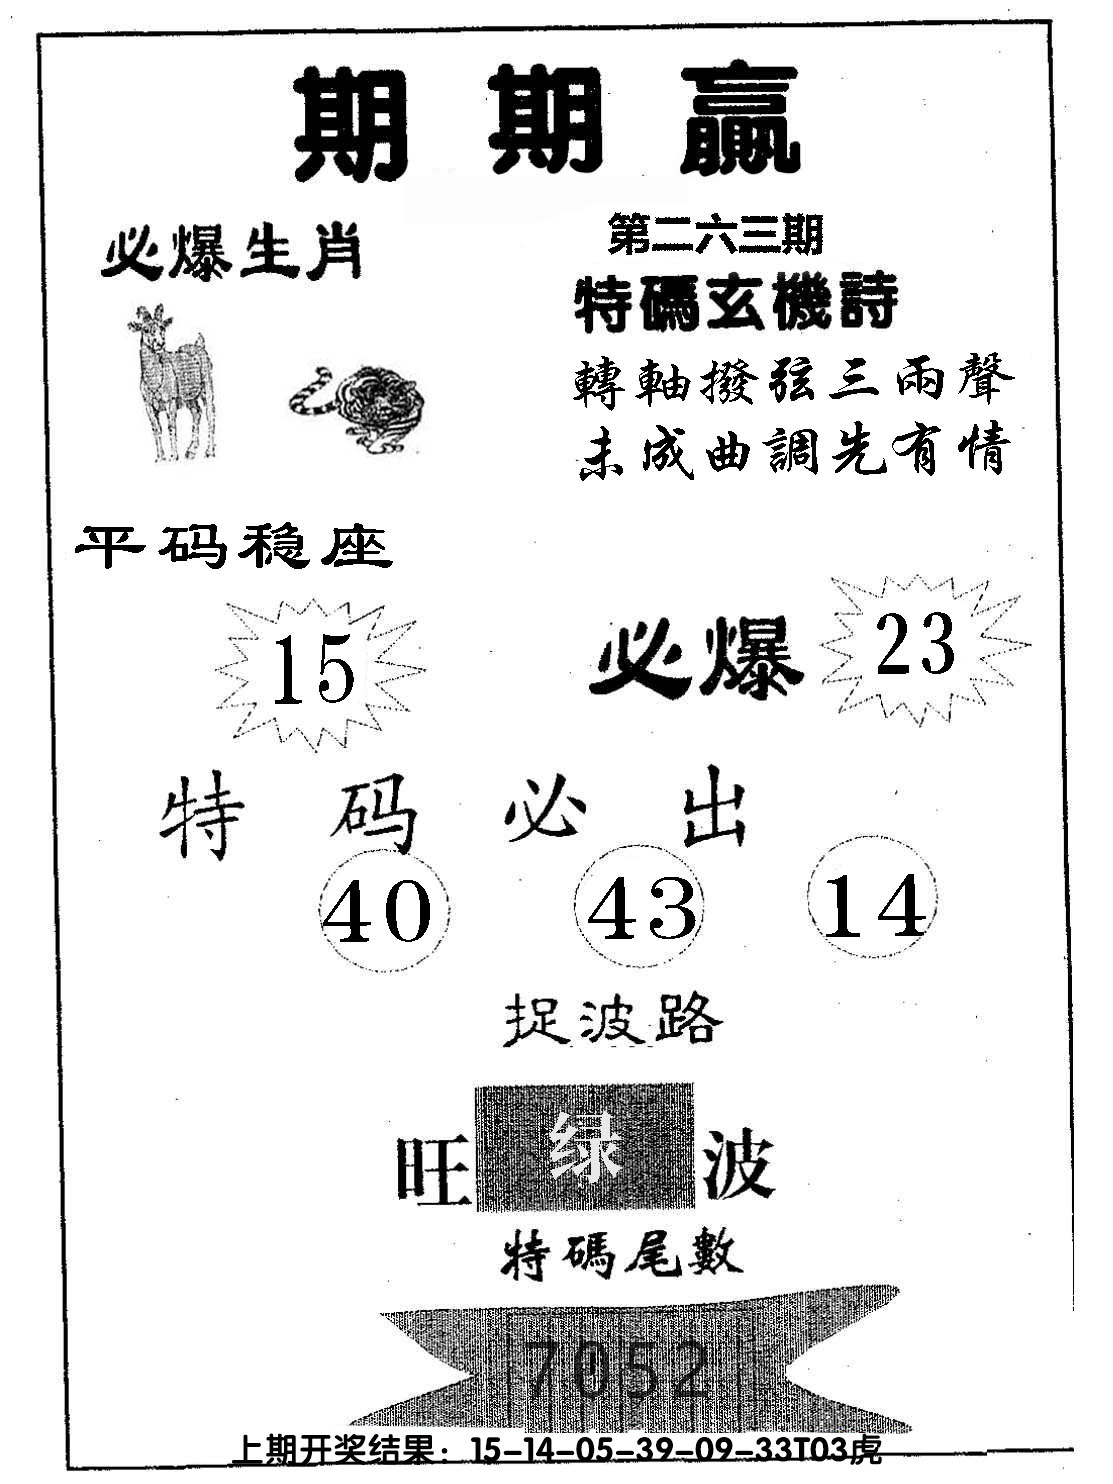 期期贏
必爆生肖
第二六三期
特碼玄機詩
轉軸撥弦三兩聲
未成曲調先有情
平码稳座
15
必爆 23
特码必出
40 43 14
捉波路
旺 绿 波
特碼尾數
7052
上期开奖结果：15-14-05-39-09-33T03虎